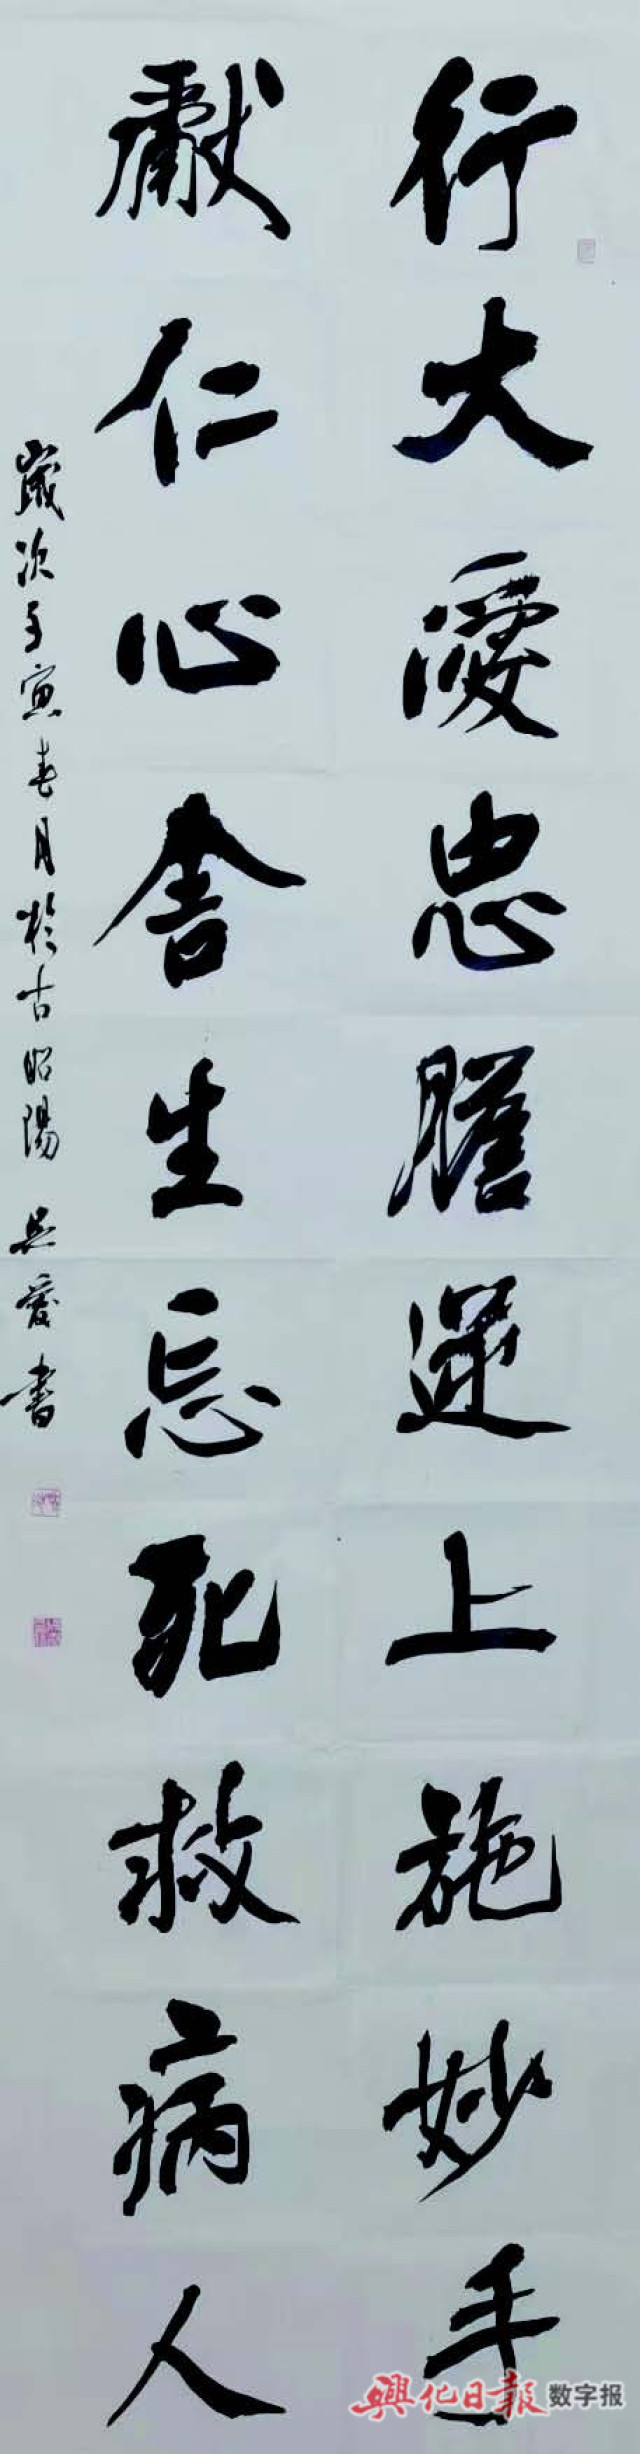 行大愛忠膽逆上施妙手
獻仁心舍生忘死救病人
歲次壬寅春月於古昭陽 吳愛書
興化日報 数字报